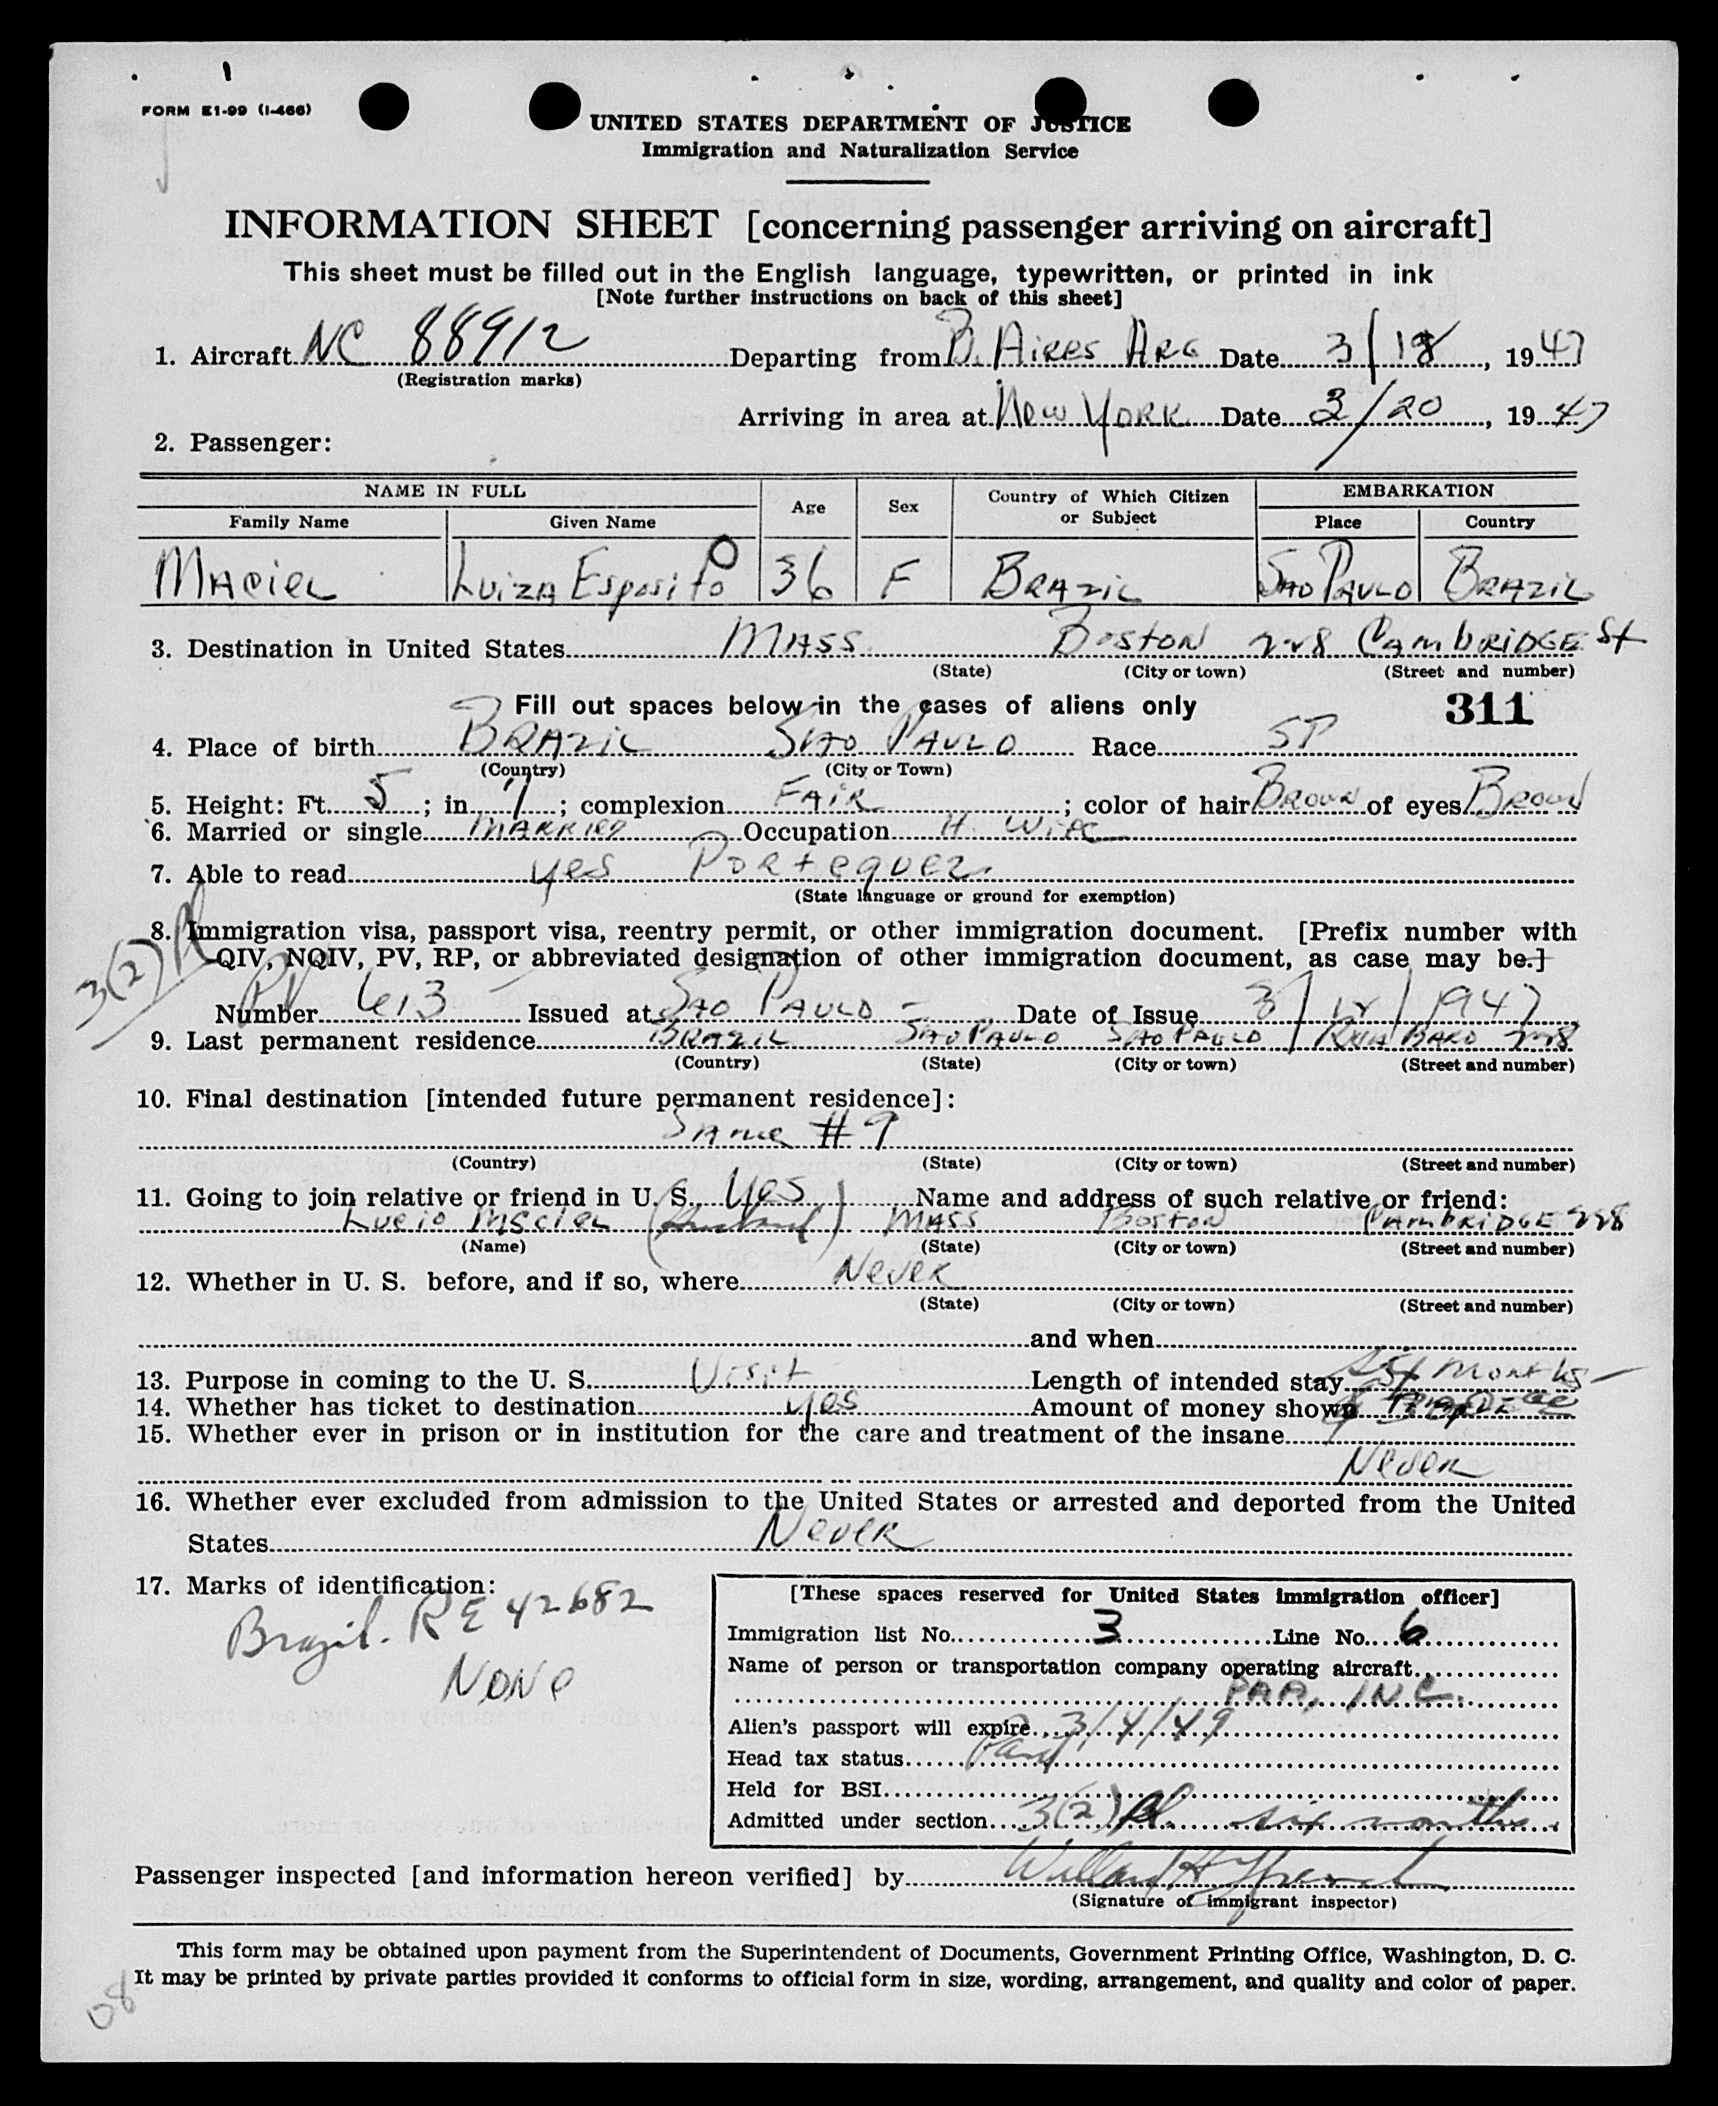 FORM E1-99 (I-466)
UNITED STATES DEPARTMENT OF JUSTICE
Immigration and Naturalization Service
INFORMATION SHEET [concerning passenger arriving on aircraft]
This sheet must be filled out in the English language, typewritten, or printed in ink
[Note further instructions on back of this sheet]
1. Aircraft NC 88912 Departing from B. Aires Arg Date 3/18, 1947
(Registration marks)
Arriving in area at New York Date 3/20, 1947
2. Passenger:
NAME IN FULL Age Sex Country of Which Citizen or Subject EMBARKATION
Family Name Given Name Place Country
Maciel Luiza Esposito 36 F Brazil Sao Paulo Brazil
3. Destination in United States Mass Boston 228 Cambridge St
(State) (City or town) (Street and number)
Fill out spaces below in the cases of aliens only 311
4. Place of birth Brazil Sao Paulo Race SP
(Country) (City or Town)
5. Height: Ft. 5; in. 7; complexion Fair; color of hair Brown of eyes Brown
6. Married or single Married Occupation H. Wife
7. Able to read yes Porteguez
(State language or ground for exemption)
8. Immigration visa, passport visa, reentry permit, or other immigration document. [Prefix number with
QIV, NQIV, PV, RP, or abbreviated designation of other immigration document, as case may be.]
3(2)
Number PV 613 Issued at Sao Paulo Date of Issue 3/12/1947
9. Last permanent residence Brazil Sao Paulo Sao Paulo
(Country) (State) (City or town) (Street and number)
10. Final destination [intended future permanent residence]:
Same #9
(Country) (State) (City or town) (Street and number)
11. Going to join relative or friend in U. S. Yes Name and address of such relative or friend:
Lucio Maciel (Husband) Mass Boston Cambridge 228
(Name) (State) (City or town) (Street and number)
12. Whether in U. S. before, and if so, where Never
(State) (City or town) (Street and number)
and when
13. Purpose in coming to the U. S. Visit Length of intended stay months
14. Whether has ticket to destination yes Amount of money shown
15. Whether ever in prison or in institution for the care and treatment of the insane
Never
16. Whether ever excluded from admission to the United States or arrested and deported from the United
States Never
17. Marks of identification:
Brazil. RE 42682
None
[These spaces reserved for United States immigration officer]
Immigration list No. 3 Line No. 6
Name of person or transportation company operating aircraft
PAA, INC.
Alien's passport will expire 3/4/49
Head tax status
Held for BSI
Admitted under section 3(2) six months
Passenger inspected [and information hereon verified] by
(Signature of immigrant inspector)
This form may be obtained upon payment from the Superintendent of Documents, Government Printing Office, Washington, D. C.
It may be printed by private parties provided it conforms to official form in size, wording, arrangement, and quality and color of paper.